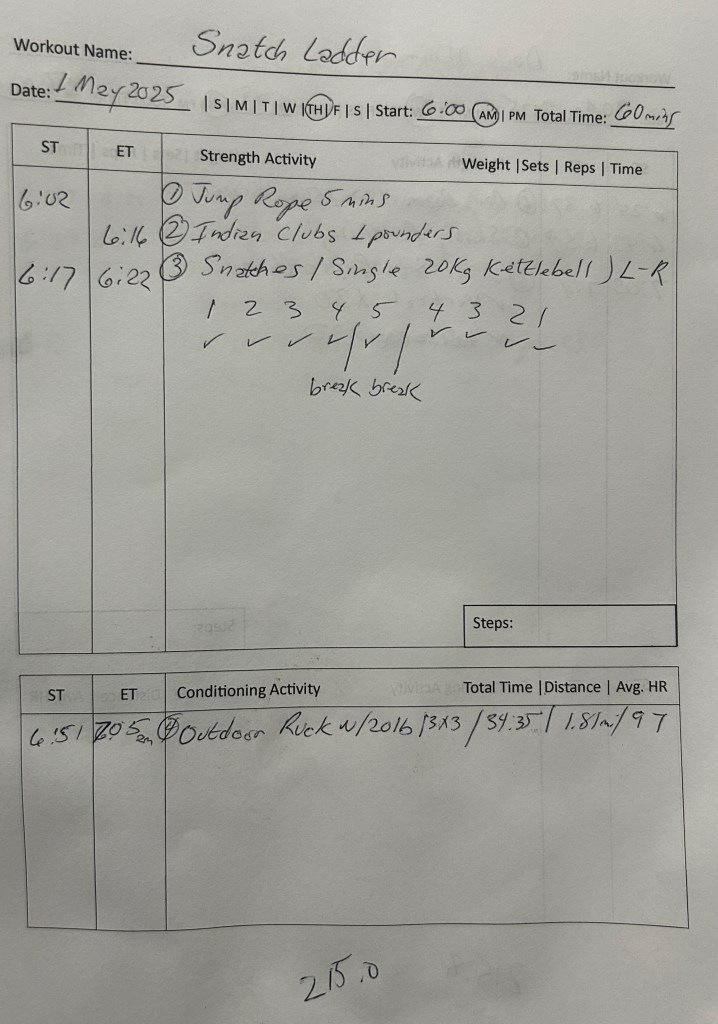 Workout Name: Snatch Ladder
Date: 1 May 2025 | S | M | T | W | TH | F | S | Start: 6:00 AM | PM Total Time: 60 mins
ST ET Strength Activity Weight | Sets | Reps | Time
6:02 ① Jump Rope 5 mins
6:16 ② Indian Clubs 1 pounders
6:17 6:22 ③ Snatches / Single 20Kg Kettlebell ) L-R
1 2 3 4 5 4 3 2 1
✓ ✓ ✓ ✓ / ✓ / ✓ ✓ ✓ ✓
break break
Steps:
ST ET Conditioning Activity Total Time | Distance | Avg. HR
6:51 7:05 am ④ Outdoor Ruck w/20lb | 3x3 / 34:35 / 1.81mi / 97
215.0